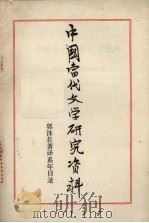 中國當代文学研究資料
郭沫若著译系年目录